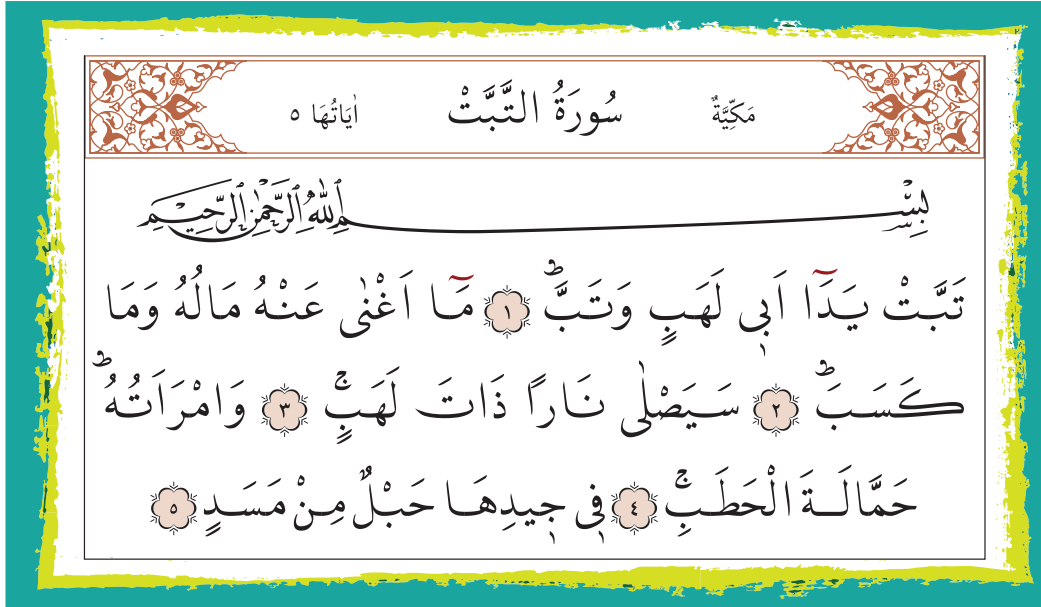 مَكِّيَّةٌ سُورَةُ التَّبَّتْ اٰيَاتُهَا ٥
بِسْمِ اللّٰهِ الرَّحْمٰنِ الرَّحٖيمِ
تَبَّتْ يَدَٓا اَبٖى لَهَبٍ وَتَبَّؕ ١ مَٓا اَغْنٰى عَنْهُ مَالُهُ وَمَا
كَسَبَؕ ٢ سَيَصْلٰى نَارًا ذَاتَ لَهَبٍۚ ٣ وَامْرَاَتُهُؕ
حَمَّالَةَ الْحَطَبِۚ ٤ فٖى جٖيدِهَا حَبْلٌ مِنْ مَسَدٍ ٥